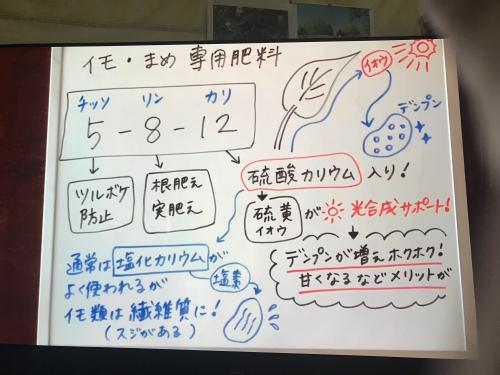 イモ・まめ 専用肥料
イオウ
チッソ リン カリ
5-8-12
デンプン
ツルボケ
防止
根肥え
実肥え
硫酸カリウム 入り!
硫黄
イオウ
が 光合成サポート!
通常は塩化カリウムが
よく使われるが
塩素
イモ類は繊維質に!
(スジがある)
デンプンが増えホクホク!
甘くなるなどメリットが